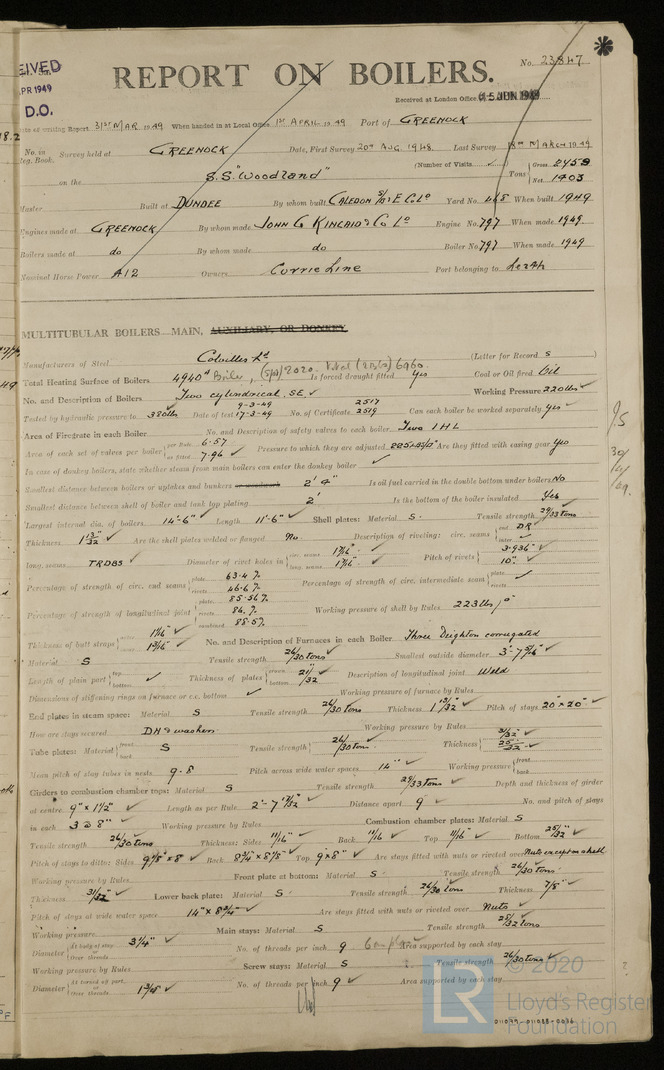 EIVED
APR 1949
D.O.
No. 23847
REPORT ON BOILERS.
Received at London Office 15 JUN 1949
Date of writing Report 31st MAR 1949 When handed in at Local Office 1st APRIL 1949 Port of GREENOCK
No. in Reg. Book. Survey held at GREENOCK Date, First Survey 20th AUG 1948 Last Survey MARCH 1949
(Number of Visits ✓ ) Gross 2459
on the S.S. "Woodland" Tons Net 1403
Master Built at DUNDEE By whom built CALEDON S/B & E Co Ld Yard No. 468 When built 1949
Engines made at GREENOCK By whom made JOHN G KINCAID & Co Ld Engine No. 797 When made 1949
Boilers made at do By whom made do Boiler No. 797 When made 1949
Nominal Horse Power 412 Owners Currie Line Port belonging to Leith
MULTITUBULAR BOILERS MAIN, AUXILIARY, OR DONKEY.
Manufacturers of Steel Colvilles Ld (Letter for Record S )
Total Heating Surface of Boilers 4940 Boiler, (spt) 2020. Total (2 Bs) 6960. Is forced draught fitted Yes Coal or Oil fired Oil
No. and Description of Boilers Two cylindrical, SE. ✓ Working Pressure 220 lbs ✓
Tested by hydraulic pressure to 380 lbs Date of test 9-3-49 17-3-49 No. of Certificate 2517 2519 Can each boiler be worked separately Yes ✓
Area of Firegrate in each Boiler No. and Description of safety valves to each boiler Two I H L
Area of each set of valves per boiler per Rule 6.57 as fitted 7.96 ✓ Pressure to which they are adjusted 225 lbs/□" Are they fitted with easing gear Yes
In case of donkey boilers, state whether steam from main boilers can enter the donkey boiler ✓
Smallest distance between boilers or uptakes and bunkers or woodwork 2' 4" Is oil fuel carried in the double bottom under boilers No
Smallest distance between shell of boiler and tank top plating 2' Is the bottom of the boiler insulated Yes
Largest internal dia. of boilers 14'-6" ✓ Length 11'-6" ✓ Shell plates: Material S Tensile strength 29/33 tons
Thickness 1 13/32" ✓ Are the shell plates welded or flanged No. Description of riveting: circ. seams end DR inter ✓
long. seams TRDBS ✓ Diameter of rivet holes in circ. seams 1 7/16" ✓ long. seams 1 7/16" ✓ Pitch of rivets 3.936" ✓ 10" ✓
Percentage of strength of circ. end seams plate 63.4 % rivets 46.6 % Percentage of strength of circ. intermediate seam plate ✓ rivets
Percentage of strength of longitudinal joint plate 85.56 % rivets 86. % combined 88.5 % Working pressure of shell by Rules 223 lbs/□"
Thickness of butt straps outer 1 1/16 ✓ inner 1 3/16 ✓ No. and Description of Furnaces in each Boiler Three Deighton corrugated
Material S Tensile strength 26/30 tons Smallest outside diameter 3'-7 9/16" ✓
Length of plain part top bottom ✓ Thickness of plates crown bottom 21/32" ✓ Description of longitudinal joint Weld
Dimensions of stiffening rings on furnace or c.c. bottom ✓ Working pressure of furnace by Rules
End plates in steam space: Material S Tensile strength 26/30 tons Thickness 1 13/32" ✓ Pitch of stays 20" x 20" ✓
How are stays secured DN & washers Working pressure by Rules
Tube plates: Material front back S Tensile strength 26/30 tons. Thickness 31/32" ✓ 25/32 ✓
Mean pitch of stay tubes in nests 9.8 Pitch across wide water spaces 14" ✓ Working pressure front back
Girders to combustion chamber tops: Material S Tensile strength 29/33 tons ✓ Depth and thickness of girder
at centre 9" x 1 1/2" ✓ Length as per Rule 2'-7 17/32" ✓ Distance apart 9" ✓ No. and pitch of stays
in each 3 @ 8" ✓ Working pressure by Rules Combustion chamber plates: Material S
Tensile strength 26/30 tons Thickness: Sides 11/16" ✓ Back 11/16 ✓ Top 11/16" ✓ Bottom 25/32" ✓
Pitch of stays to ditto: Sides 9 1/8" x 8 ✓ Back 8 3/4" x 8 5/8" ✓ Top 9" x 8" ✓ Are stays fitted with nuts or riveted over Nuts except on shell
Working pressure by Rules Front plate at bottom: Material S Tensile strength 26/30 tons.
Thickness 31/32" ✓ Lower back plate: Material S Tensile strength 26/30 tons Thickness 7/8" ✓
Pitch of stays at wide water space 14" x 8 3/4" ✓ Are stays fitted with nuts or riveted over Nuts ✓
Working pressure Main stays: Material S Tensile strength 28/32 tons
Diameter At body of stay Over threads 3 1/4" ✓ No. of threads per inch 9 Area supported by each stay
Working pressure by Rules Screw stays: Material S Tensile strength 26/30 tons ✓
Diameter At turned off part Over threads 1 3/4" ✓ No. of threads per inch 9 ✓ Area supported by each stay
LR © 2020
Lloyd's Register
Foundation